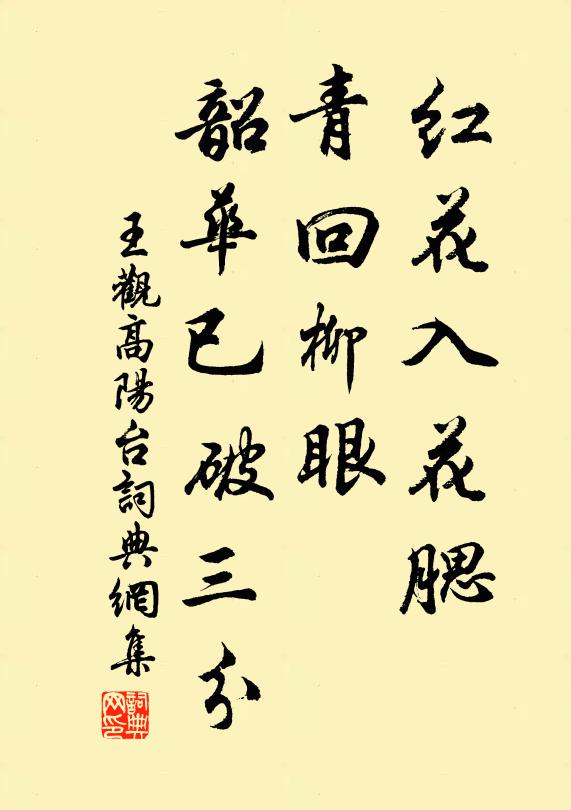 红花入花腮
青回柳眼
韶華已破三分
王觀高陽台詞典網集
詞典网印